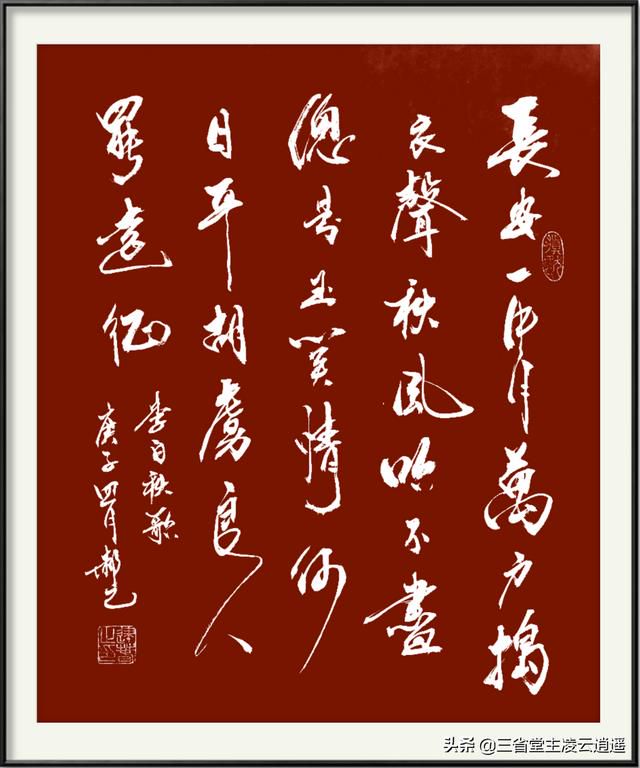 長安一片月萬戶搗
衣聲秋風吹不盡
總是玉關情何
日平胡虜良人
罷遠征
李白秋歌
庚子四月
头条 @三省堂主凌云逍遥